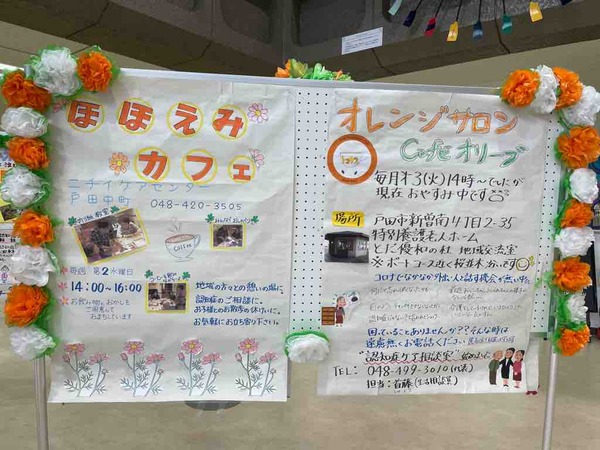 ほほえみ
カフェ
ニチイケアセンター
戸田中町 048-420-3505
coffee
毎週 第2水曜日
14:00~16:00
お飲み物とおかしを
ご用意して
おまちしています
地域の方々との憩いの場に、
認知症のご相談に、
お子様とのお散歩の休けいに。
お気軽にお立ち寄り下さい。
オレンジサロン
Cafeオリーブ
毎月第3(火)14時~でしたが
現在おやすみ中です
場所
戸田市新曽南4丁目2-35
特別養護老人ホーム
とだ優和の杜 地域交流室
※ボートコース近く桜並木沿いです
コロナでなかなか外出、人と話す機会が無い時
困っていることありませんか??そんな時は
遠慮なくお電話ください
"認知症なんでも相談室"
TEL: 048-499-3010(代表)
担当:首藤(生活相談員)